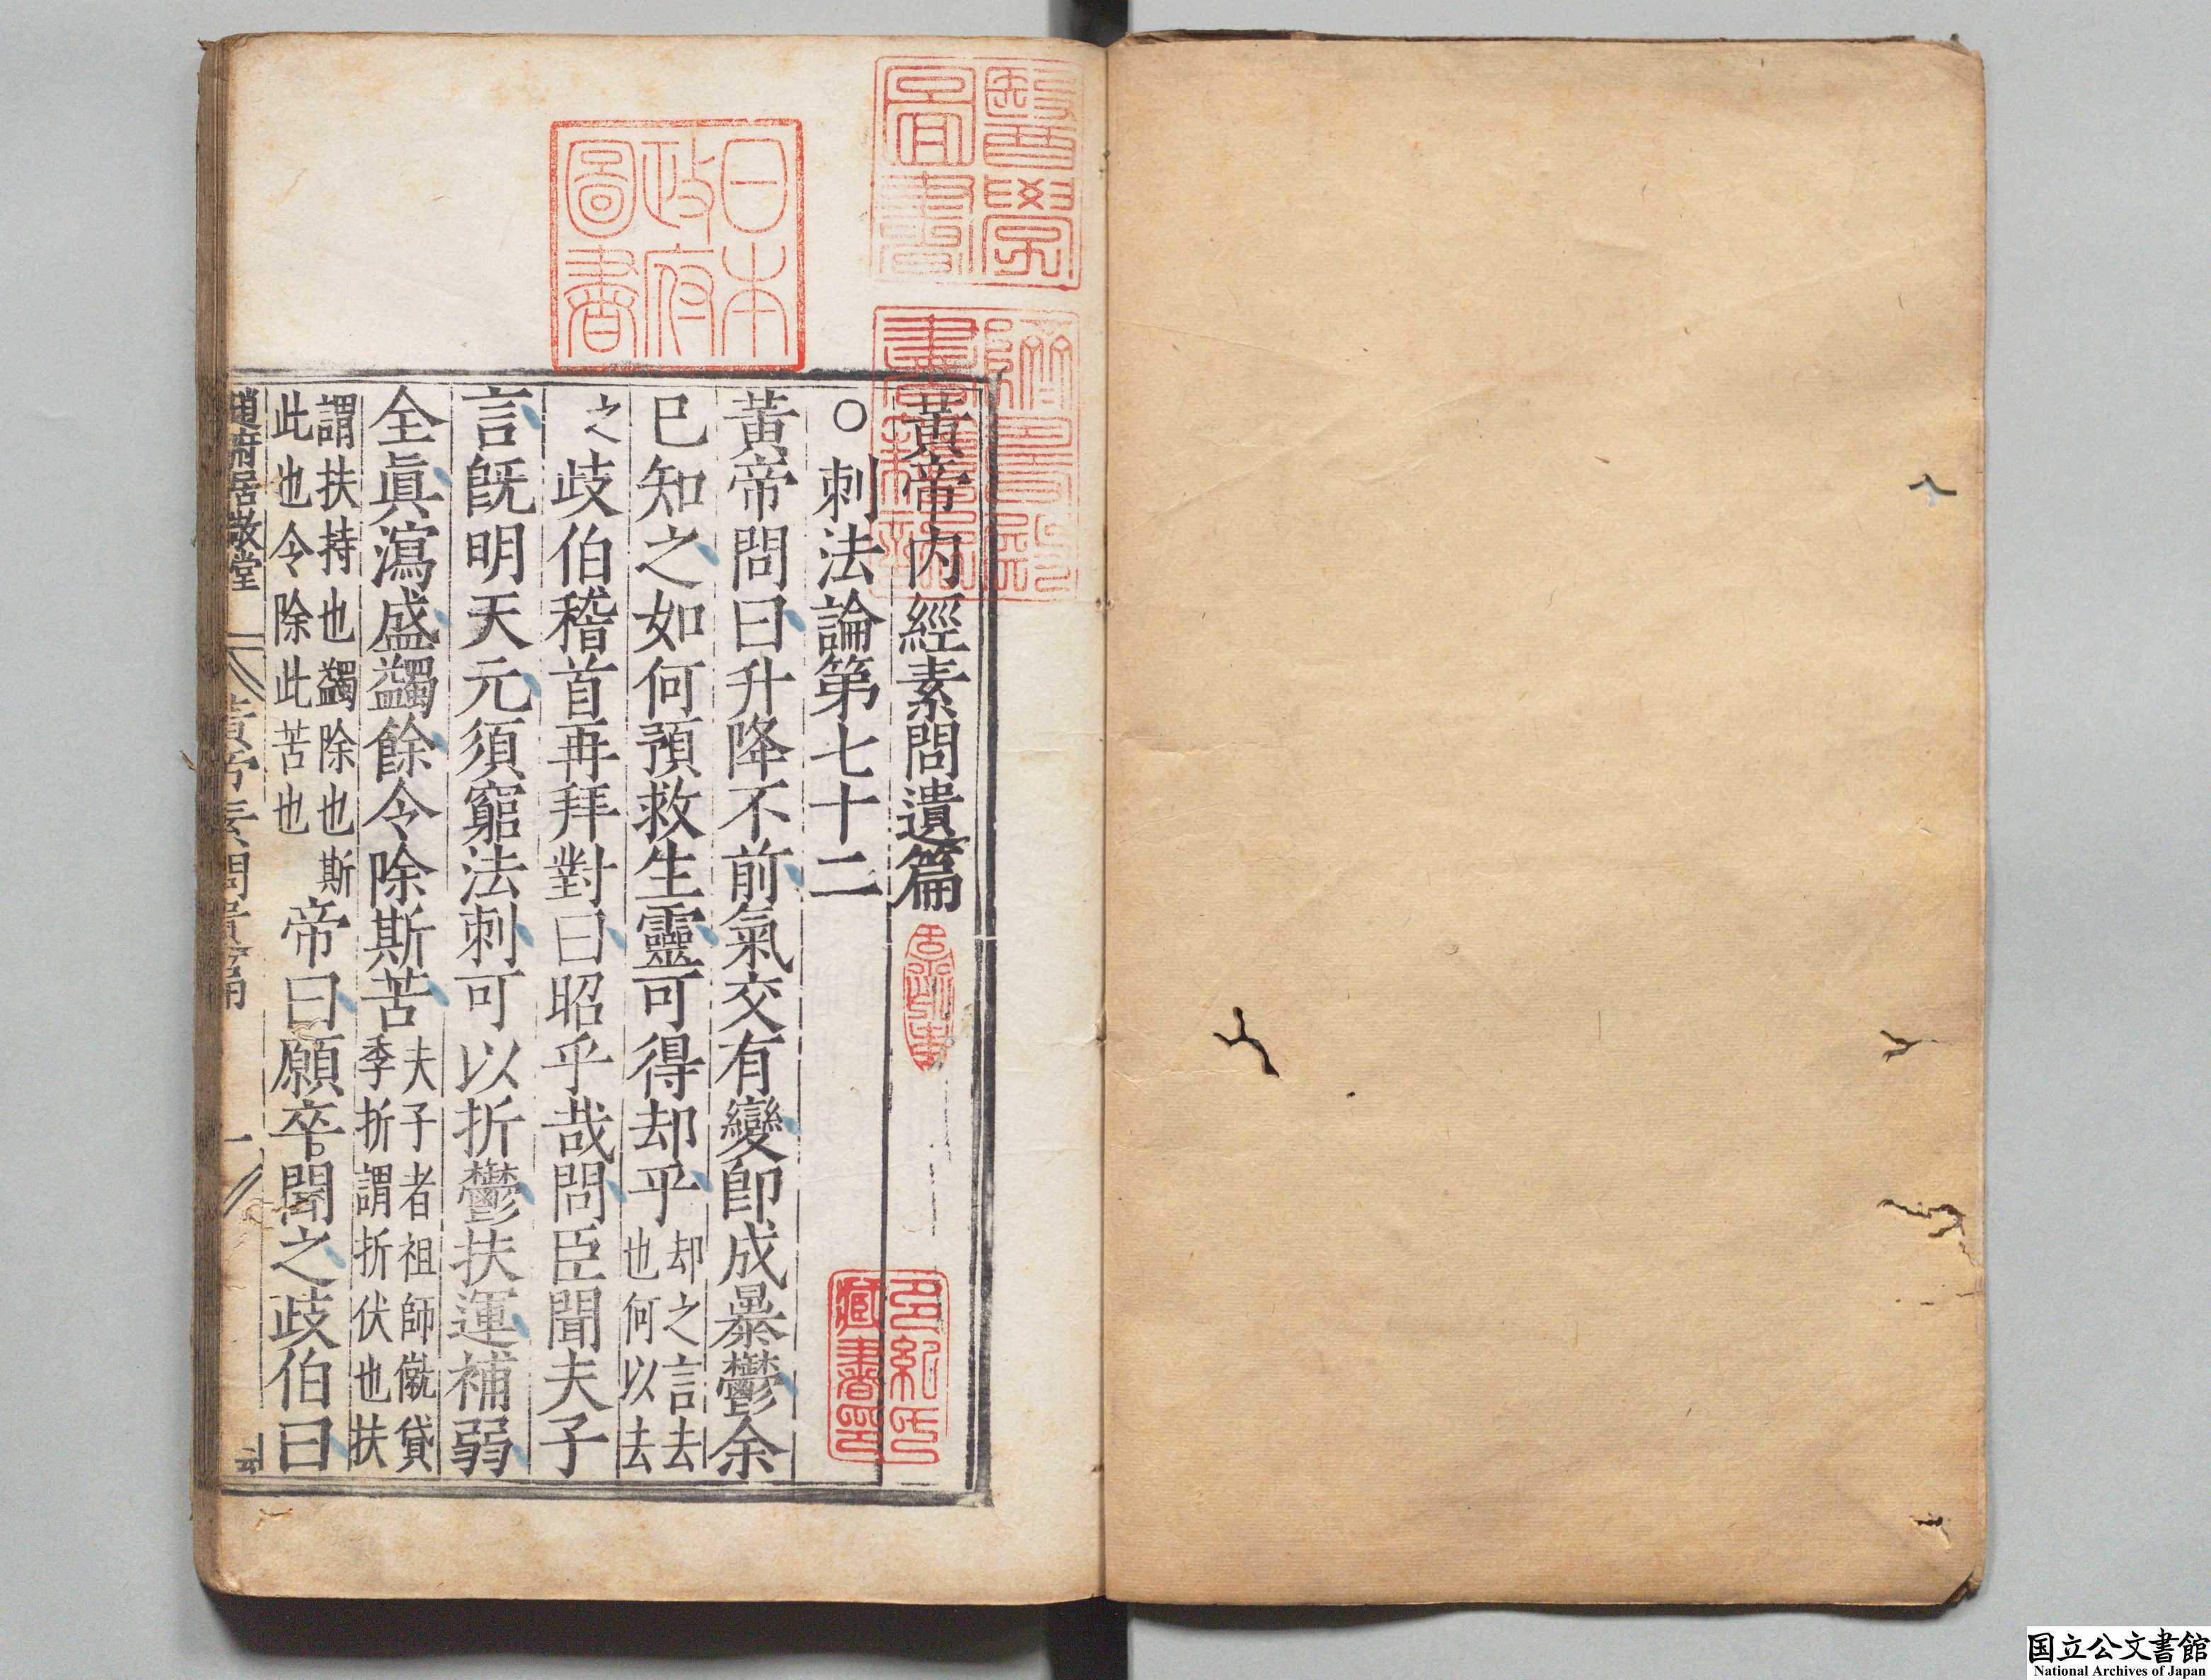 黃帝內經素問遺篇
○刺法論第七十二
黃帝問曰升降不前氣交有變卽成暴鬱余
已知之如何預救生靈可得却乎却之言去也何以去
之歧伯稽首再拜對曰昭乎哉問臣聞夫子
言旣明天元須窮法刺可以折鬱扶運補弱
全眞瀉盛蠲餘令除斯苦夫子者祖師僦貸季折謂折伏也扶
謂扶持也蠲除也斯此也令除此苦也帝曰願卒聞之歧伯曰
趙府居敬堂
黃帝素問遺篇
一
醫學
圖書
日本
政府
圖書
躋壽殿
書籍記
多紀氏
藏書印
国立公文書館
National Archives of Japan